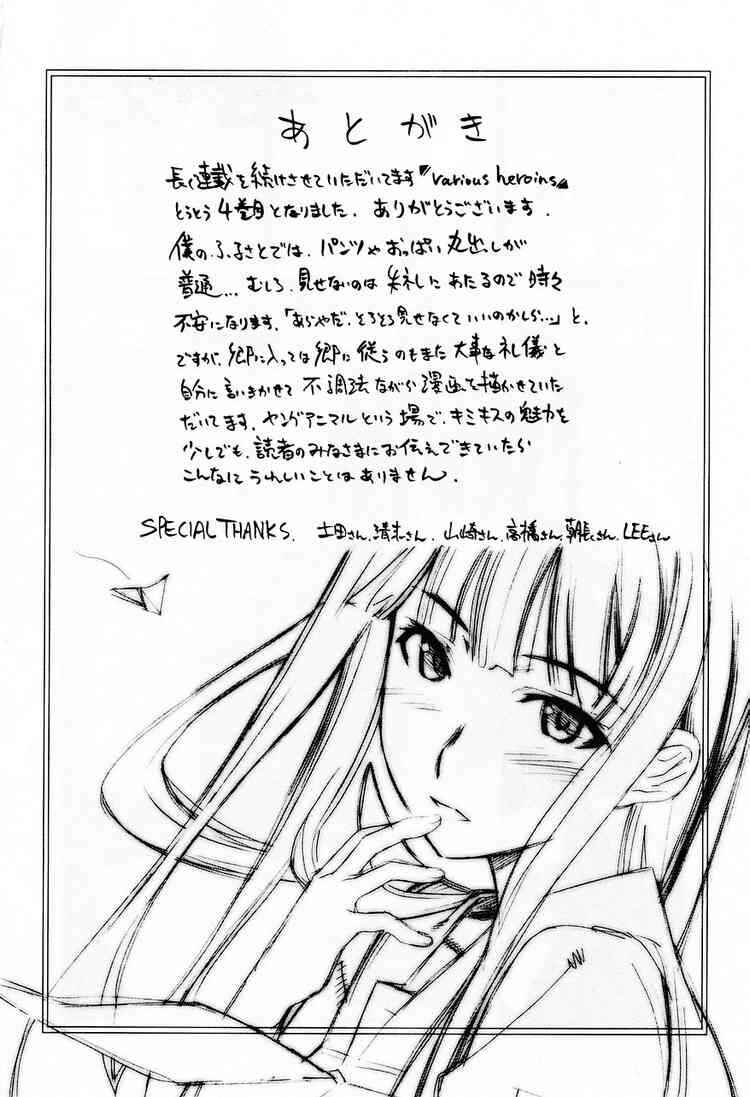 あとがき
長く連載を続けさせていただいてます『various heroins』
とうとう4巻目となりました。ありがとうございます。
僕のふるさとでは、パンツやおっぱい丸出しが
普通…むしろ、見せないのは失礼にあたるので時々
不安になります。「あらやだ、そろそろ見せなくていいのかしら…」と。
ですが、郷に入っては郷に従うのもまた大事な礼儀と
自分に言いきかせて不調法ながら漫画を描かせていた
だいてます。ヤングアニマルという場で、キミキスの魅力を
少しでも、読者のみなさまにお伝えできていたら
こんなにうれしいことはありません。
SPECIAL THANKS. 土田さん、清水さん、山崎さん、高橋さん、朝長さん、LEEさん